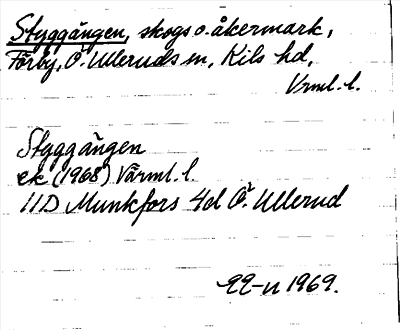 Styggängen, skogs o. åkermark,
Förby, Ö. Ulleruds sn, Kils hd,
Vrml. l.
Styggängen
ek (1968) Värml. l.
11D Munkfors 4d Ö. Ullerud
1969.